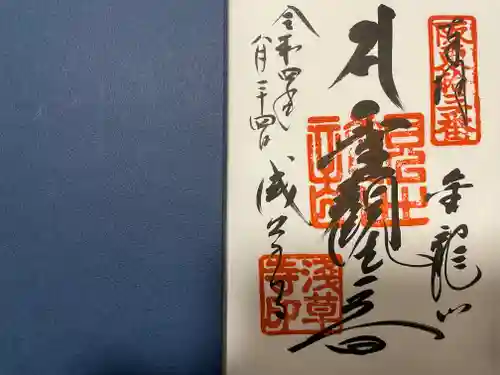 坂東十三番
奉拝
金龍山
聖観世音
令和四年
八月二十四日
浅草寺
浅草寺印